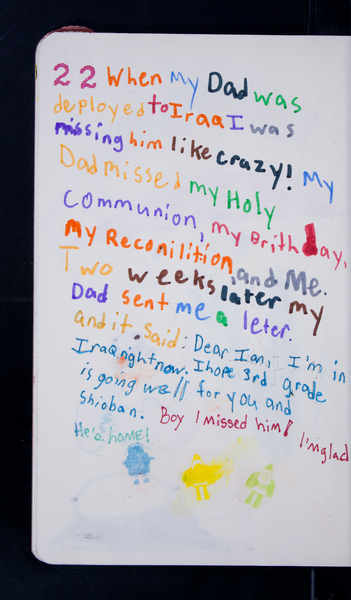 22 When my Dad was
deployed to Iraq I was
missing him like crazy! My
Dad missed my Holy
Communion, my Brithday,
my Reconilition, and Me.
Two weeks later my
Dad sent me a leter.
and it said: Dear Ian, I'm in
Iraq right now. I hope 3rd grade
is going well for you and
Shioban. Boy I missed him! I'm glad
He's home!